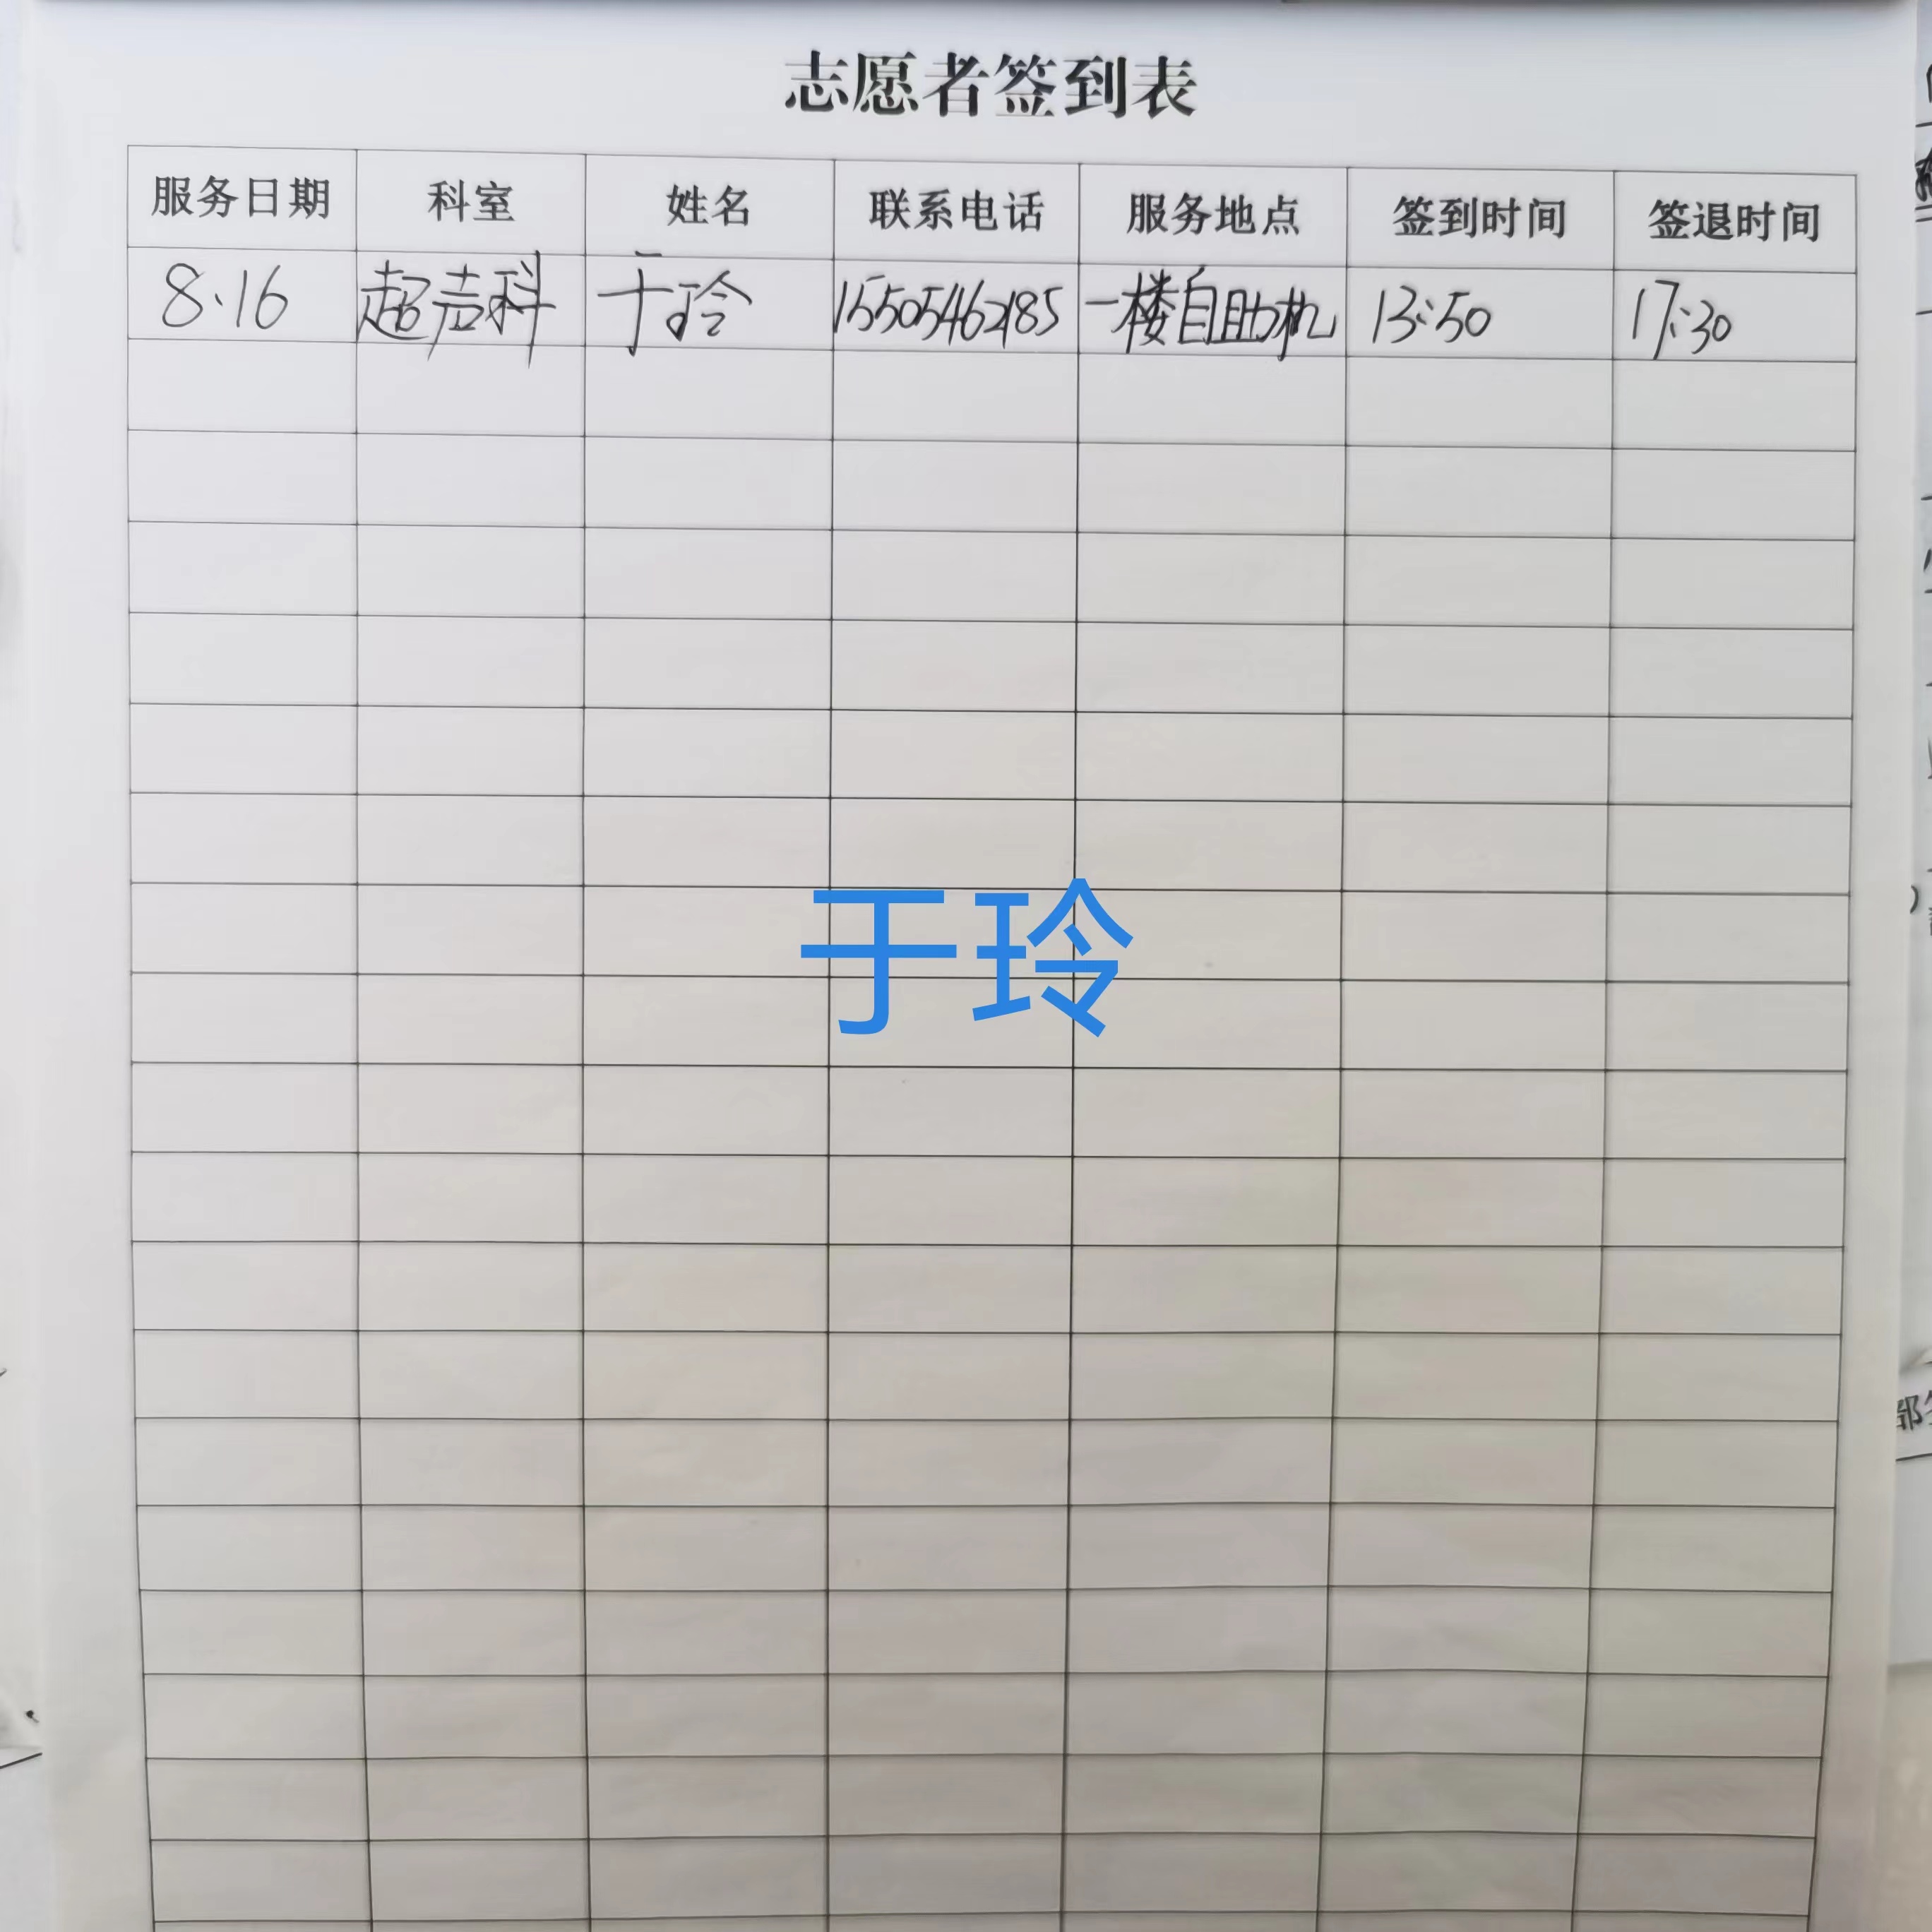 志愿者签到表
服务日期 科室 姓名 联系电话 服务地点 签到时间 签退时间
8.16 超声科 于玲 15505462185 一楼自助机 13:50 17:30
于玲
部